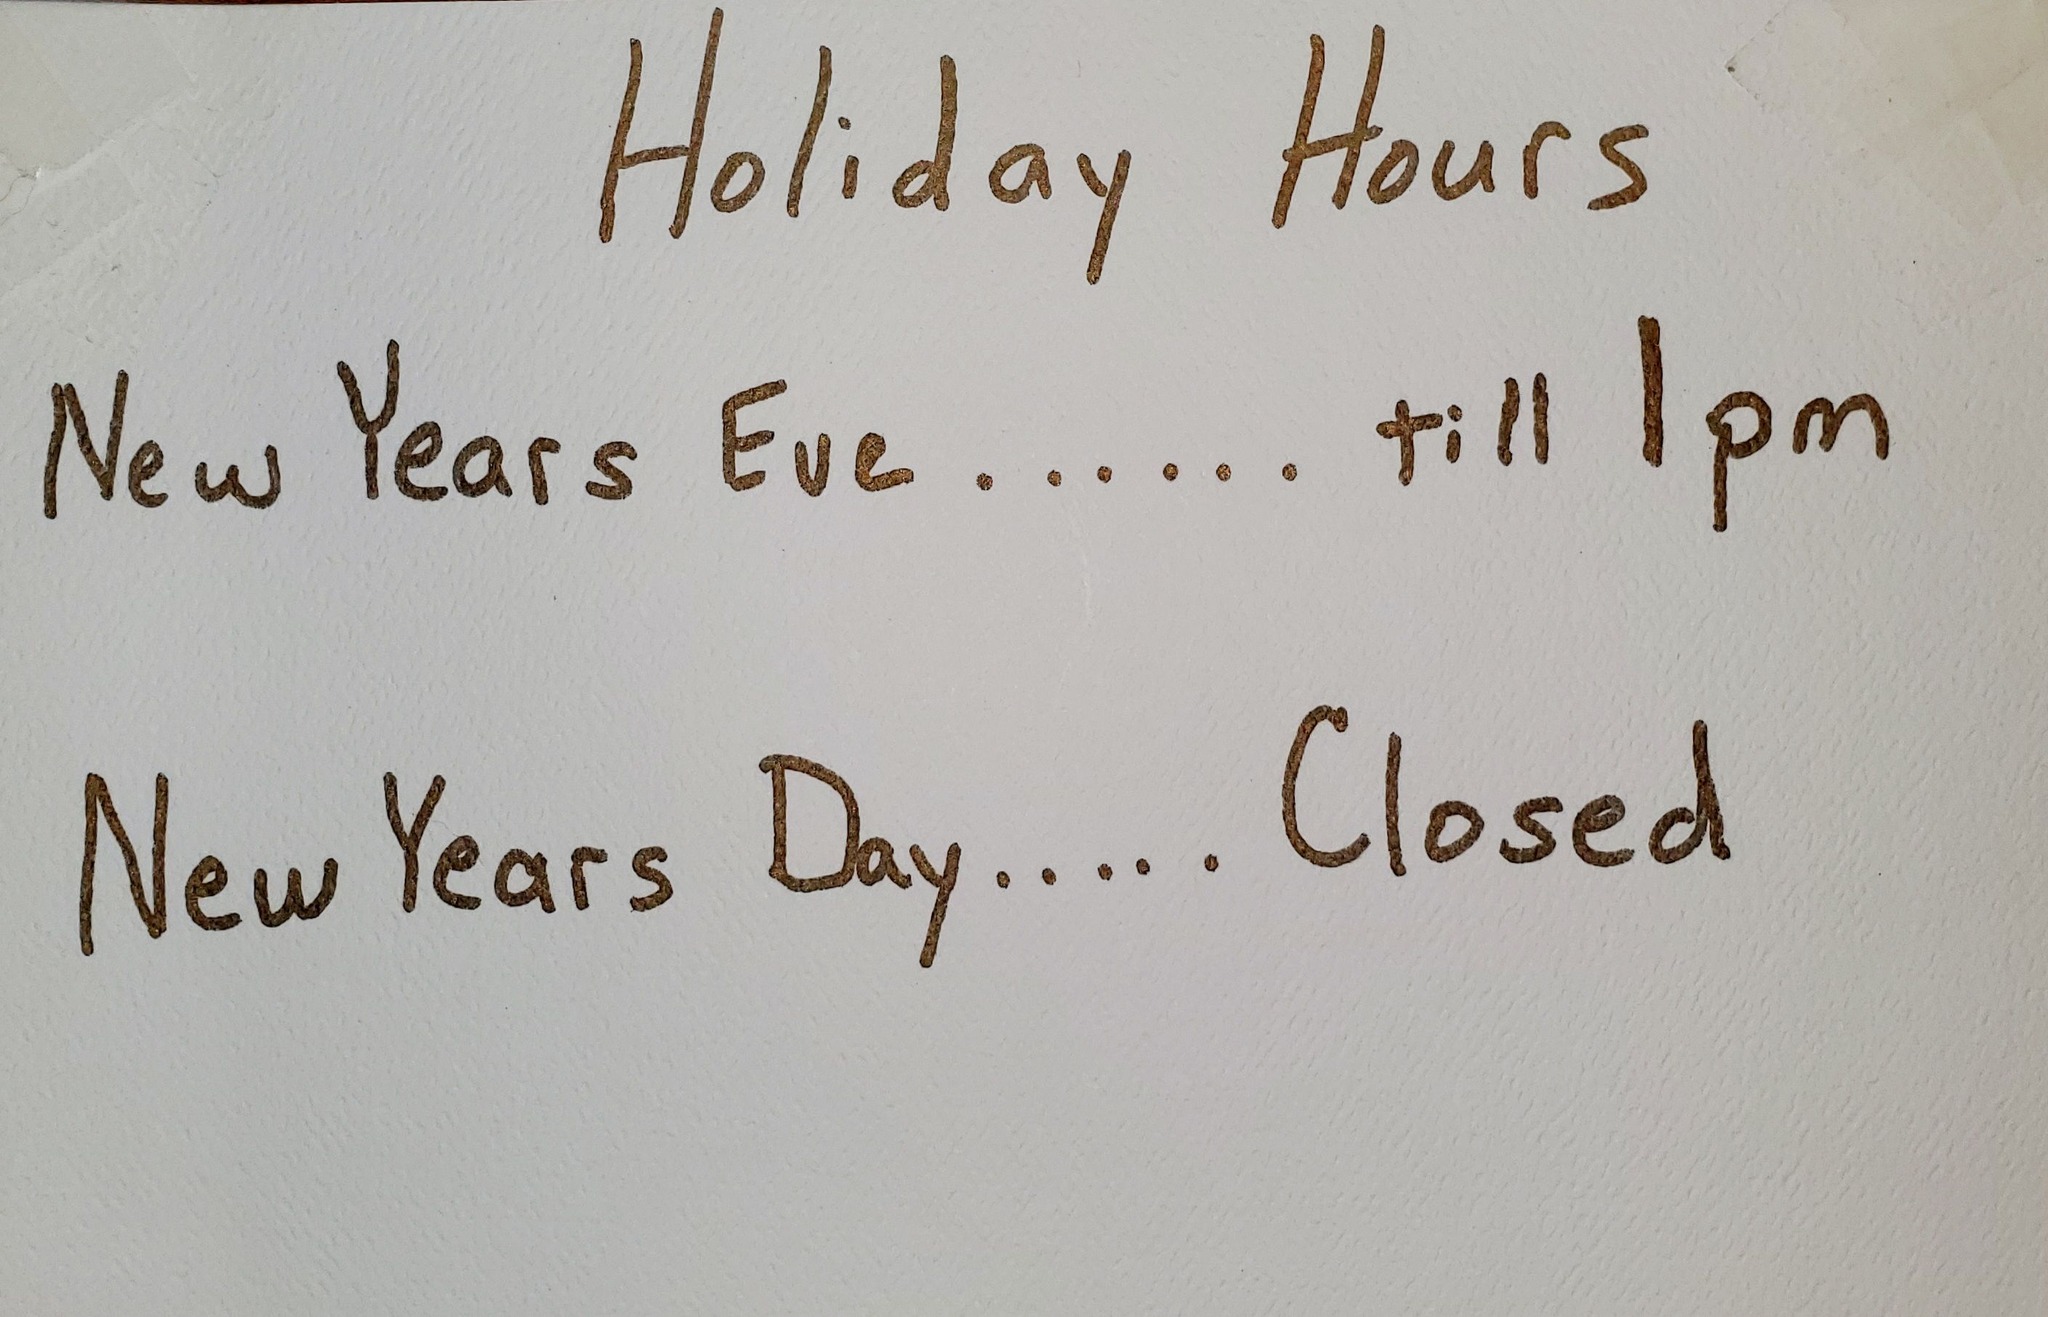 Holiday Hours
New Years Eve ...... till 1pm
New Years Day..... Closed